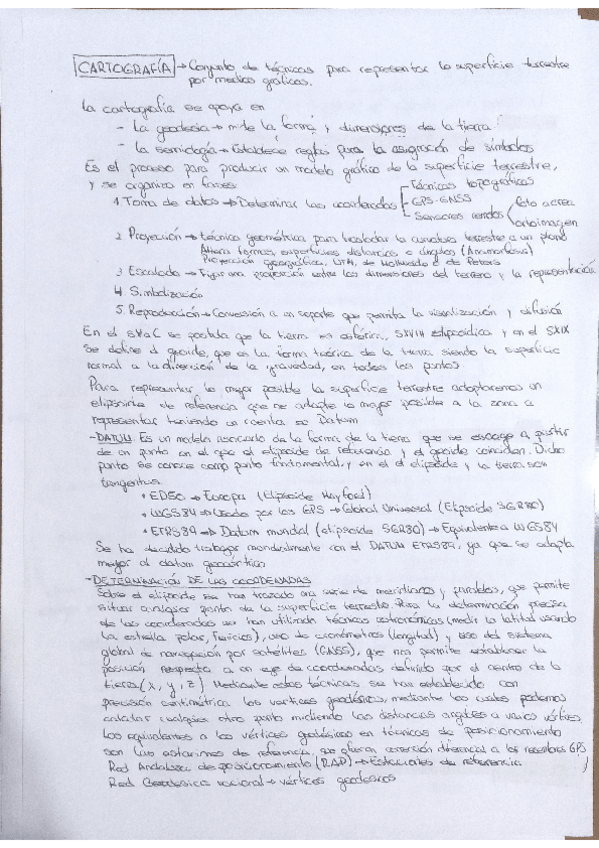 CARTOGRAFÍA → Conjunto de técnicas para representar la superficie terrestre
por medios gráficos.
La cartografía se apoya en
- La geodesia → mide la forma y dimensiones de la tierra
- La semiología → Establece reglas para la asignación de símbolos
Es el proceso para producir un modelo gráfico de la superficie terrestre,
y se organiza en fases:
1. Toma de datos → Determinar las coordenadas
Técnicas topográficas
GPS-GNSS
Sensores remotos
Foto aerea
ortoimagen
2. Proyección → técnica geométrica para trasladar la curvatura terrestre a un plano
Altera formas, superficies distancias o ángulos (Anamorfosis)
Proyección geográfica, UTM, de Mollweide o de Peters
3. Escalado → Fijar una proporción entre las dimensiones del terreno y la representación
4. Simbolización
5. Reproducción → Conversión a un soporte que permita la visualización y difusión
En el SVI aC se postula que la tierra es esférica, SXVIII elipsoidica y en el SXIX
se define el geoide, que es la forma teórica de la tierra siendo la superficie
normal a la dirección de la gravedad, en todos los puntos.
Para representar lo mejor posible la superficie terrestre adoptaremos un
elipsoide de referencia que se adapte lo mejor posible a la zona a
representar teniendo en cuenta su Datum
- DATUM. Es un modelo asociado de la forma de la tierra que se escoge a partir
de un punto en el que el elipsoide de referencia y el geoide coinciden. Dicho
punto se conoce como punto fundamental, y en el el elipsoide y la tierra son
tangentes.
• ED50 → Europa (Elipsoide Hayford)
• WGS84 → Usado por los GPS → Global Universal (Elipsoide SGR80)
• ETRS89 → Datum mundial (elipsoide SGR80) → Equivalente a WGS84
Se ha decidido trabajar mundialmente con el DATUM ETRS89, ya que se adapta
mejor al datum geocéntrico
- DETERMINACIÓN DE LAS COORDENADAS
Sobre el elipsoide se han trazado una serie de meridianos y paralelos, que permite
situar cualquier punto de la superficie terrestre. Para la determinación precisa
de las coordenadas se han utilizado técnicas astronómicas (medir la latitud usando
la estrella polar, Fenicios), uso de cronómetros (longitud) y uso del sistema
global de navegación por satélites (GNSS), que nos permite establecer la
posición respecto a un eje de coordenadas definido por el centro de la
tierra (x, y, z) Mediante estas técnicas se han establecido con
precisión centimétrica los vertices geodésicos, mediante los cuales podemos
calcular cualquier otro punto midiendo las distancias angulares a varios vértices.
Los equivalentes a los vértices geodésicos en técnicas de posicionamiento
son las estaciones de referencia, que ofrecen corrección diferencial a los receptores GPS
Red Andaluza de posicionamiento (RAP) → Estaciones de referencia
Red Geodesica nacional → vértices geodesicos